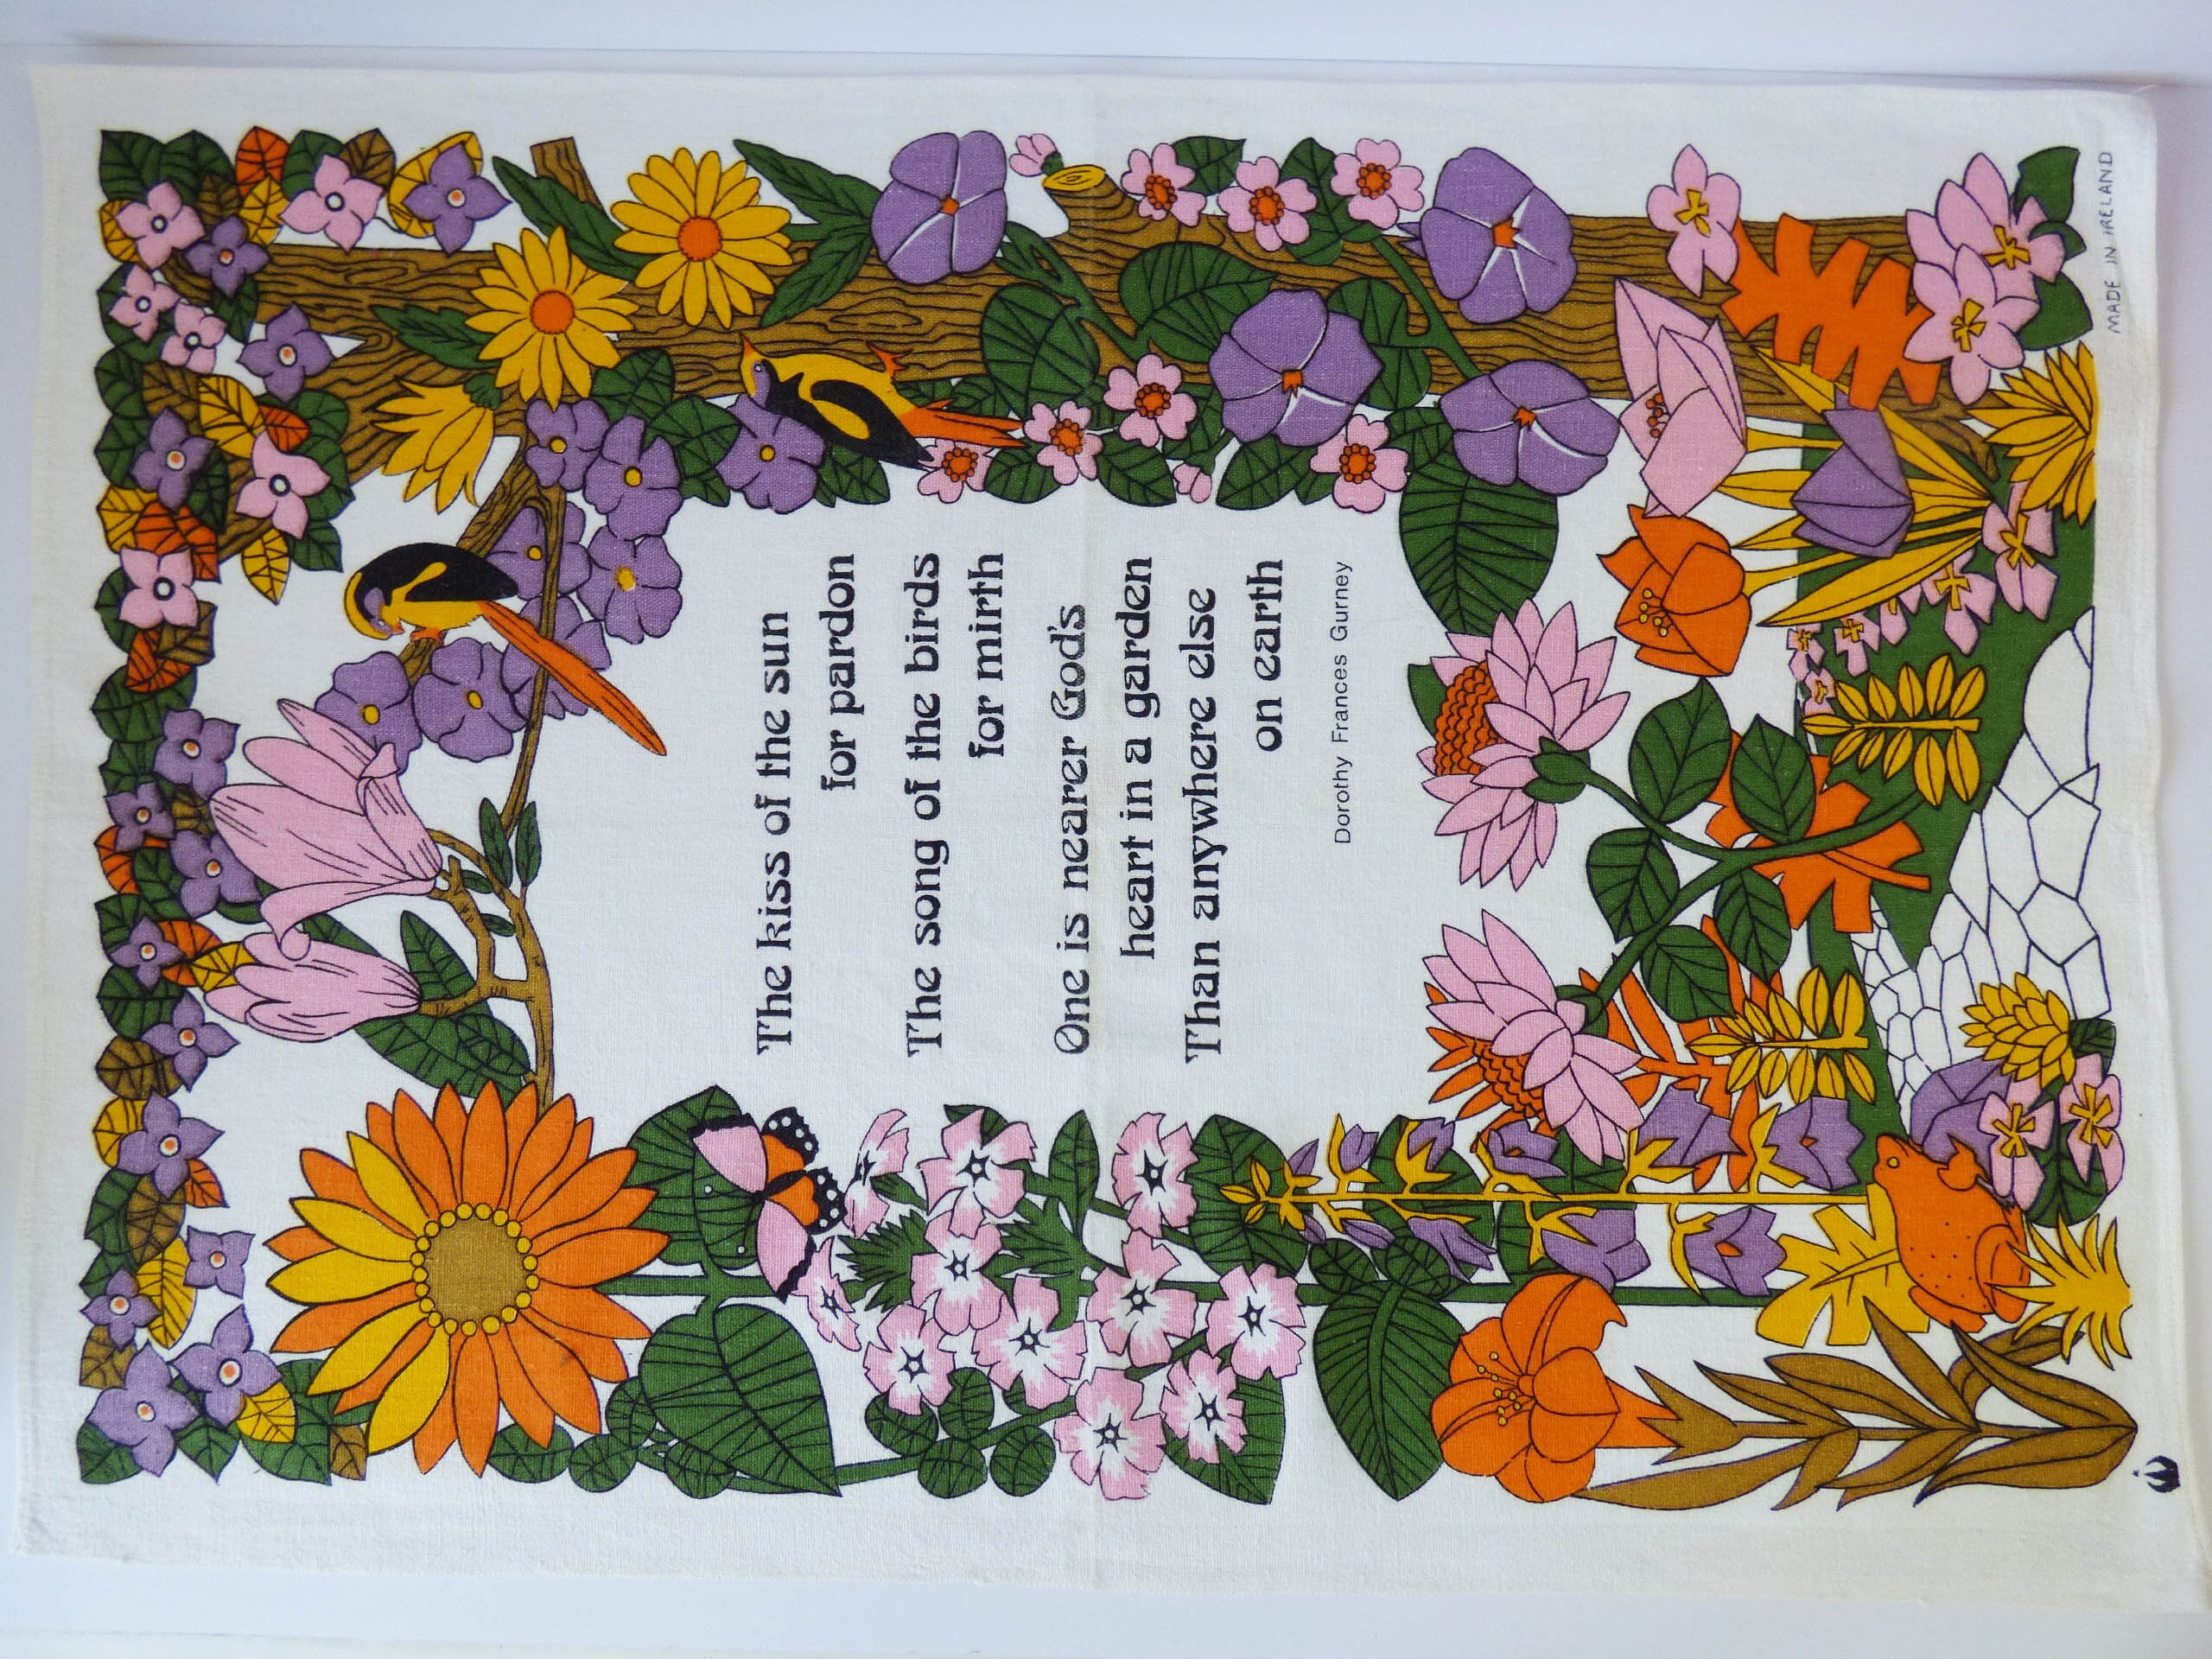 The kiss of the sun
for pardon
The song of the birds
for mirth
One is nearer God's
heart in a garden
Than anywhere else
on earth
Dorothy Frances Gurney
MADE IN IRELAND